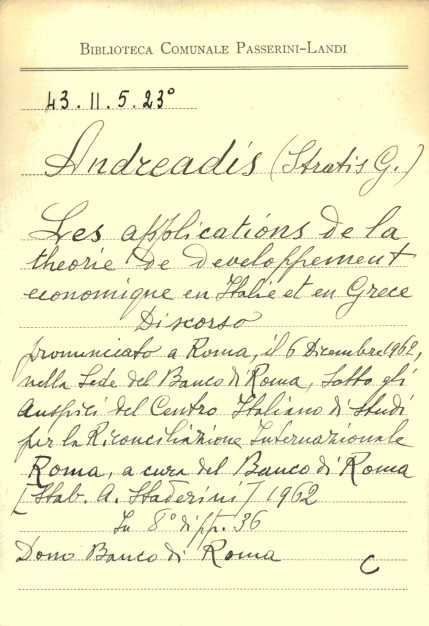 BIBLIOTECA COMUNALE PASSERINI-LANDI
43.II.5.23°
Andreadis (Stratis G.)
Les applications de la
theorie de developpement
economique en Italie et en Grece
Discorso
pronunciato a Roma, il 6 Dicembre 1962,
nella Sede del Banco di Roma, sotto gli
Auspici del Centro Italiano di Studi
per la Riconciliazione Internazionale
Roma, a cura del Banco di Roma
[Stab. A. Staderini] 1962
In 8° di pp. 36
Dono Banco di Roma
C